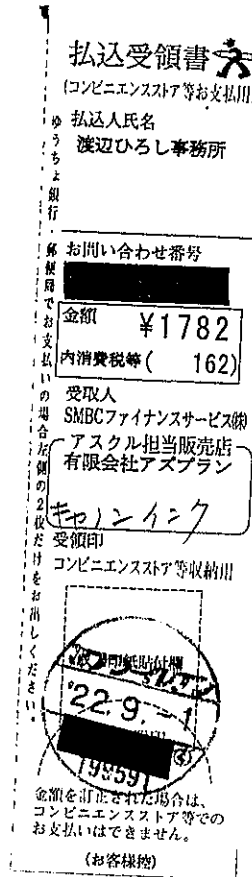 払込受領書
(コンビニエンスストア等お支払用
払込人氏名
渡辺ひろし事務所
ゆうちょ銀行・郵便局でお支払いの場合左側の2枚だけをお出しください。
お問い合わせ番号
金額 ¥1782
内消費税等( 162)
受取人
SMBCファイナンスサービス㈱
アスクル担当販売店
有限会社アズプラン
キャノンインク
受領印
コンビニエンスストア等収納用
印紙貼付欄
'22.9.-1
(9959)
金額を訂正された場合は、
コンビニエンスストア等での
お支払いはできません。
(お客様控)